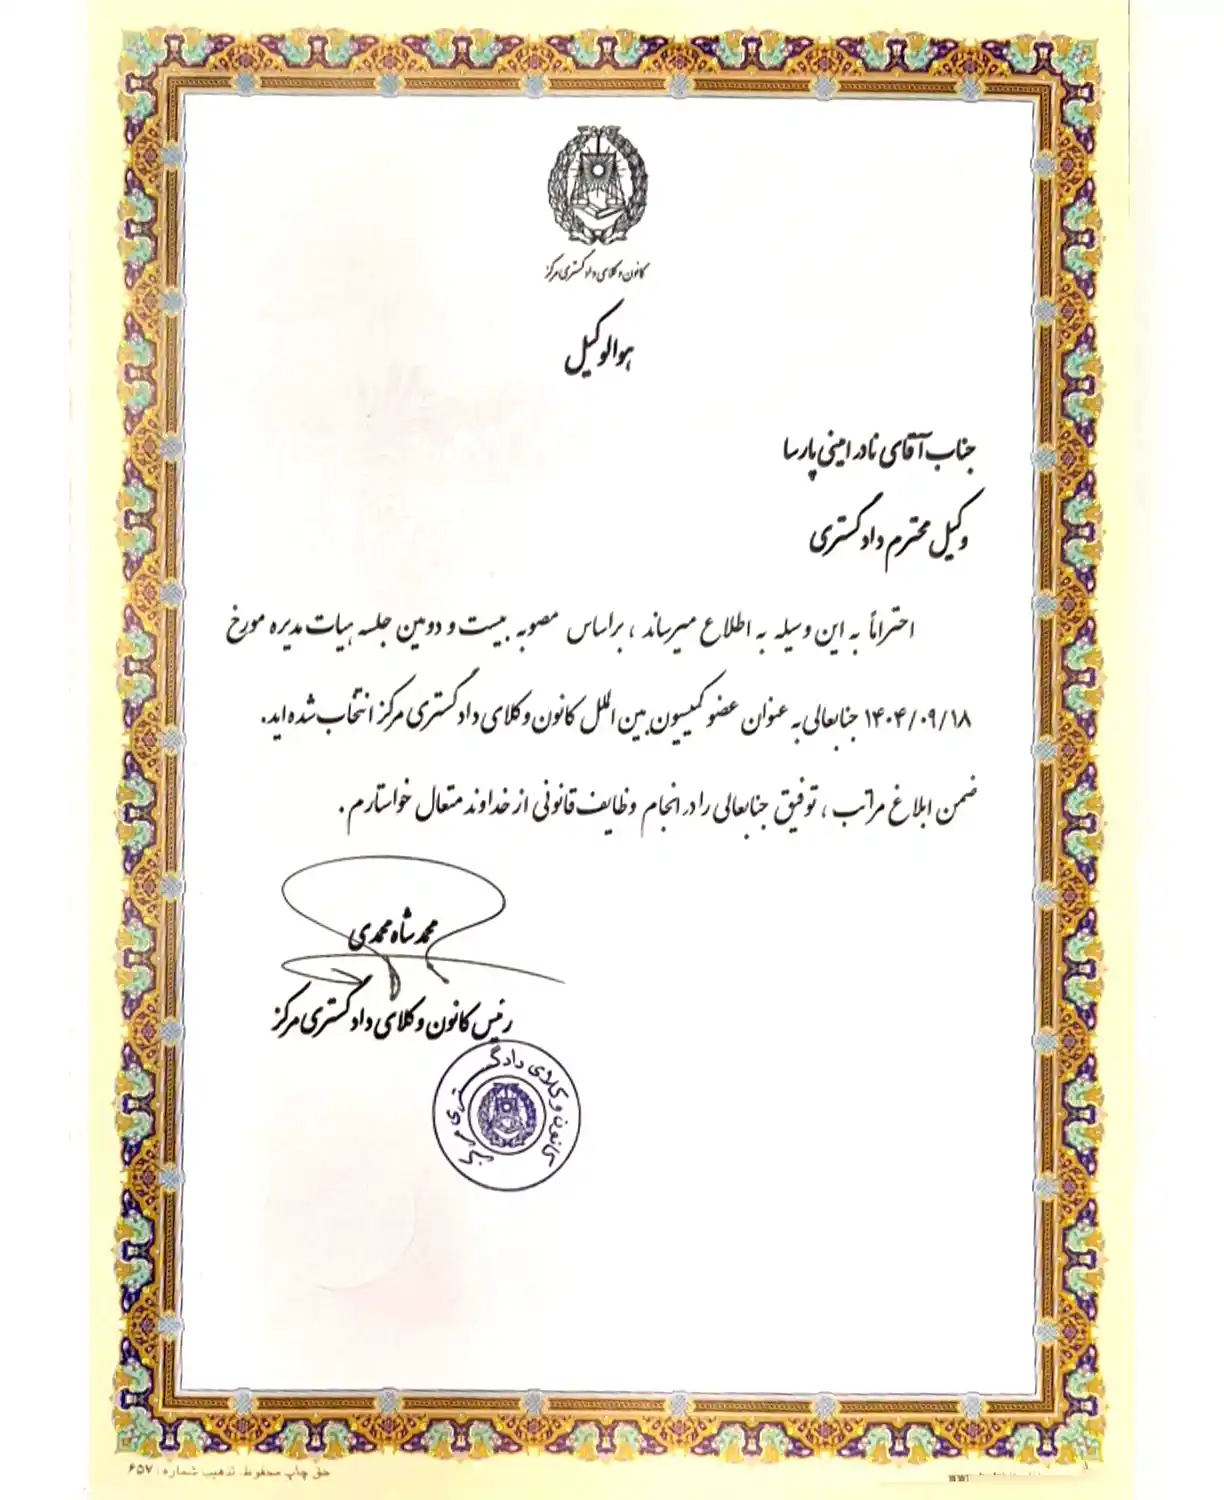 کانون وکلای دادگستری مرکز
هوالوکیل
جناب آقای نادر امینی پارسا
وکیل محترم دادگستری
احتراماً به این وسیله به اطلاع میرساند ، براساس مصوبه بیست و دومین جلسه هیات مدیره مورخ
۱۴۰۴/۰۹/۱۸ جنابعالی به عنوان عضو کمیسیون بین الملل کانون وکلای دادگستری مرکز انتخاب شده اید.
ضمن ابلاغ مراتب ، توفیق جنابعالی را در انجام وظایف قانونی از خداوند متعال خواستارم .
محمد شاه محمدی
رئیس کانون وکلای دادگستری مرکز
کانون وکلای دادگستری مرکز
حق چاپ محفوظ. تذهیب شماره: ۶۵۷